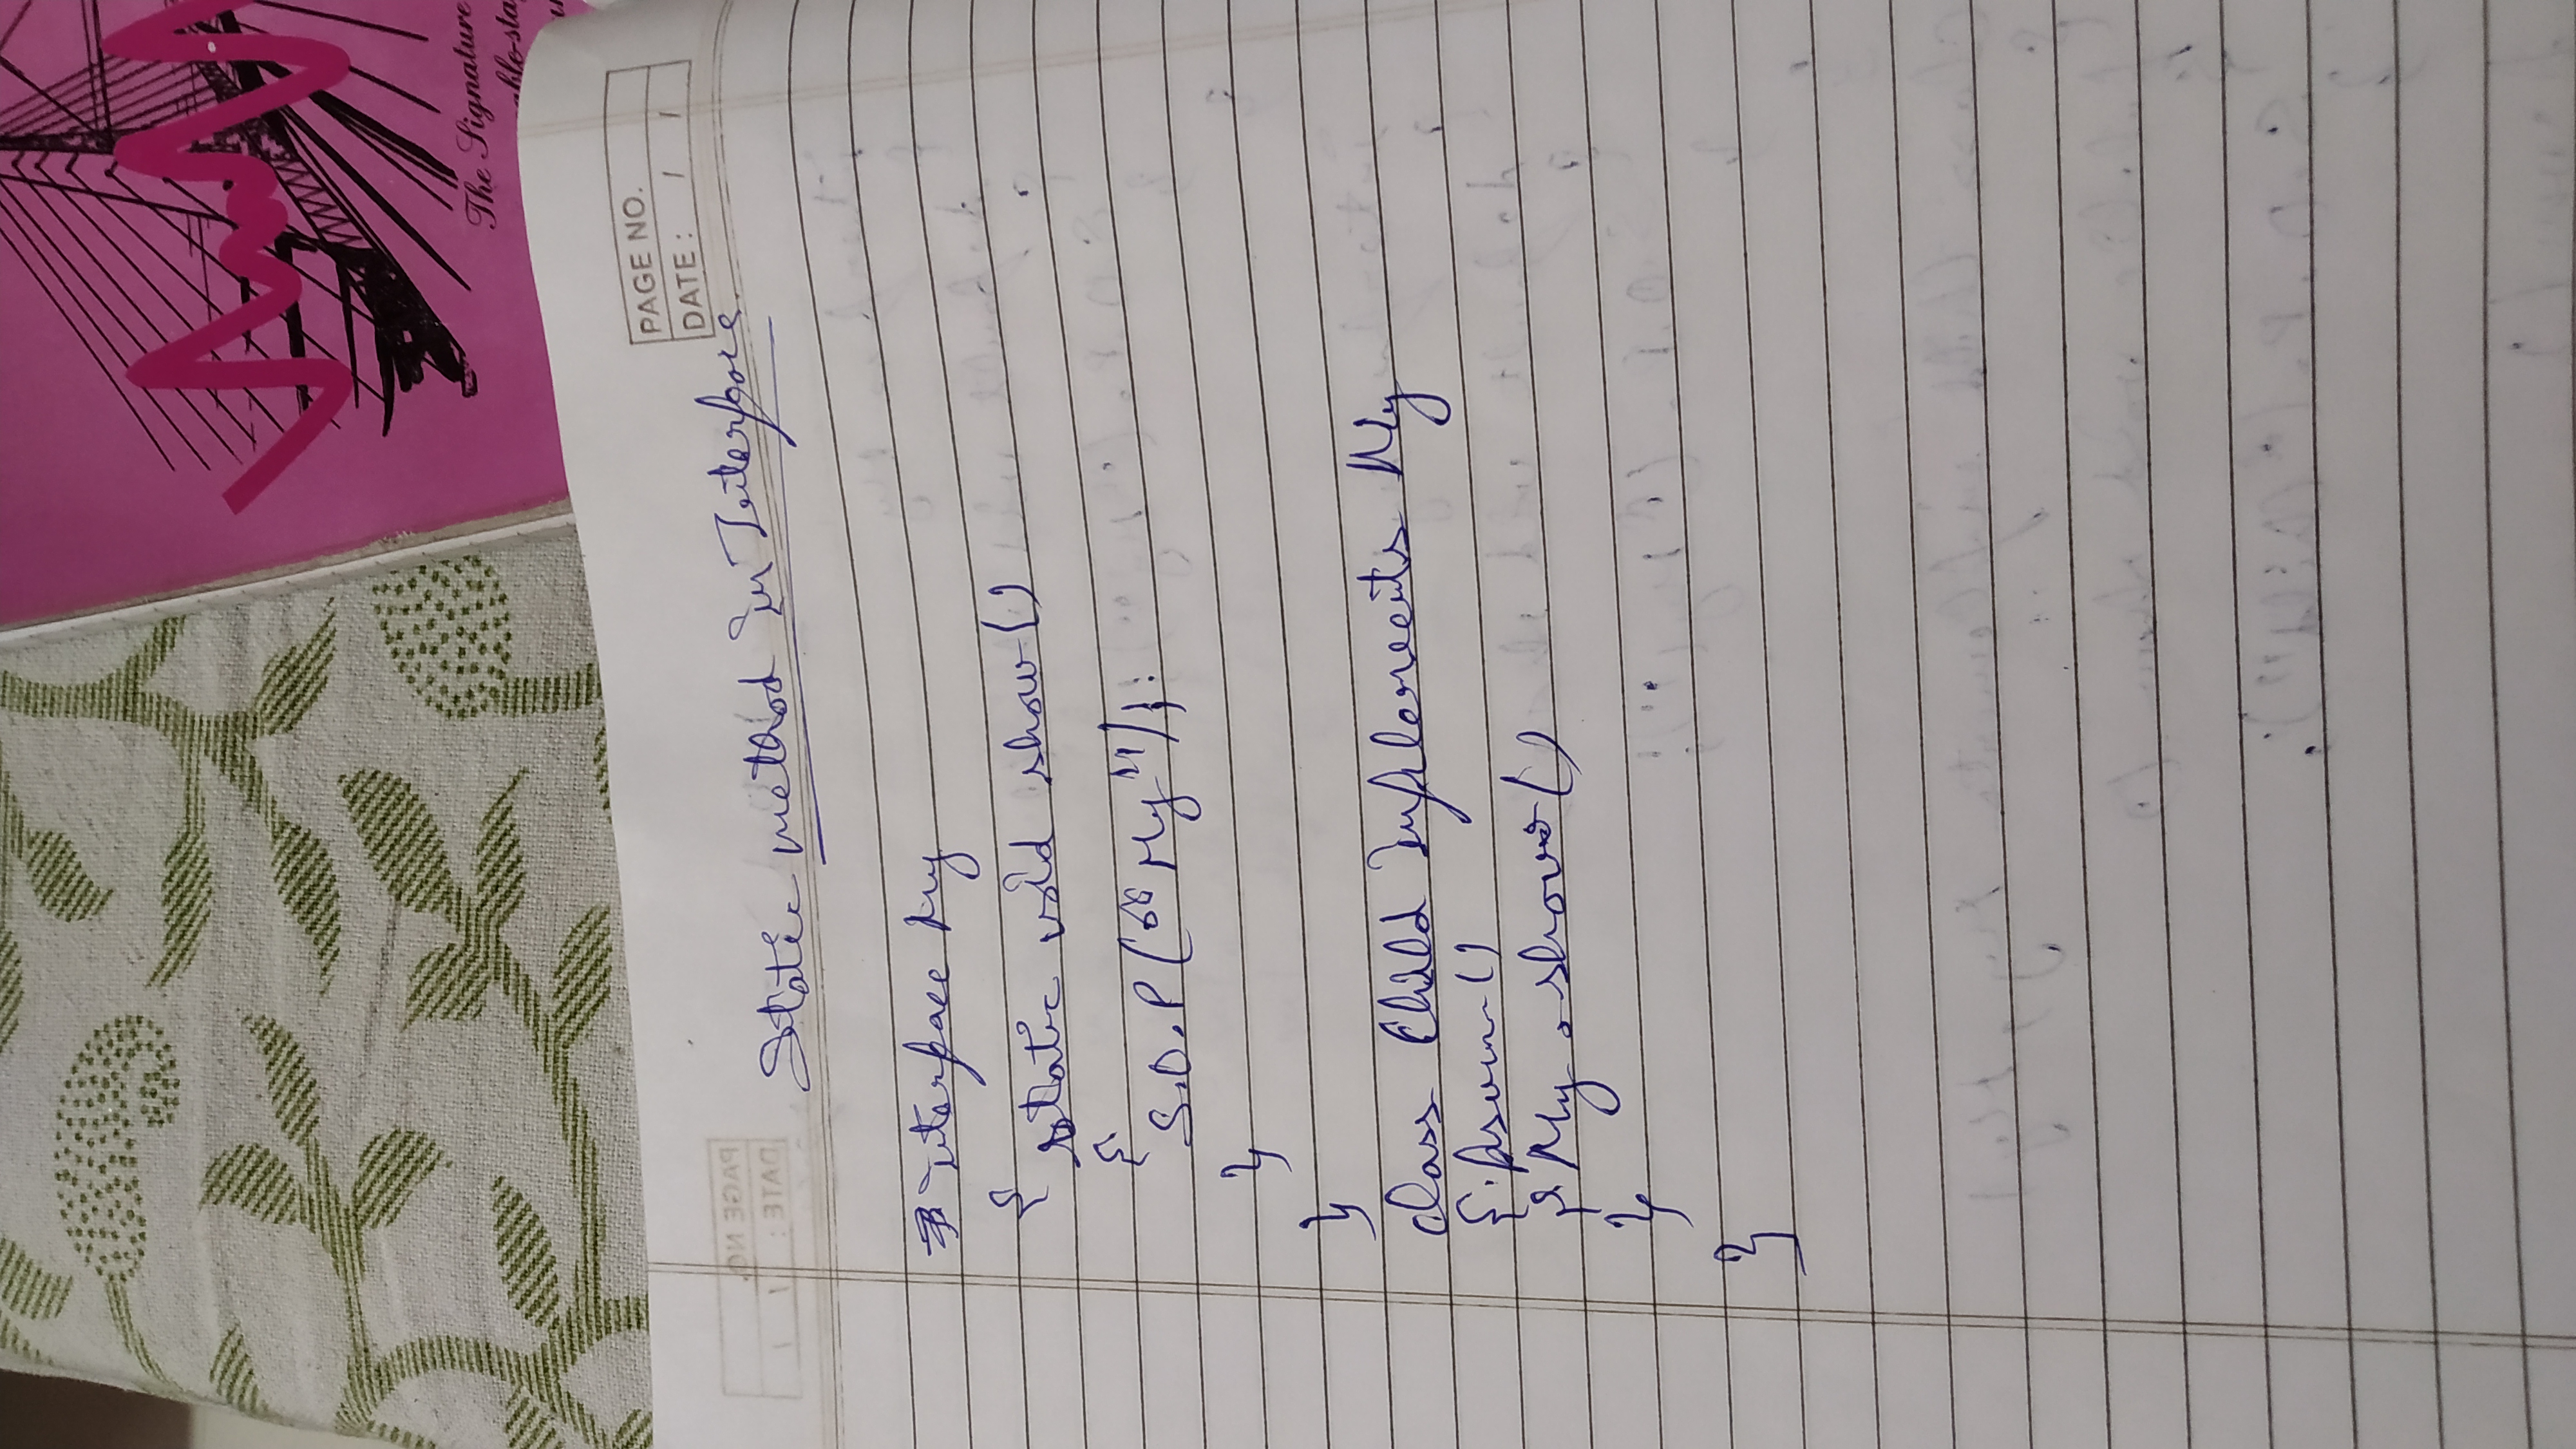 The Signature
able-sta
PAGE NO.
DATE : / /
Static method in Interface
interface My
{
static void show()
{
S.O.P (“My”);
}
}
class Child Implements My
{ psvm()
{ My.show()
}
}